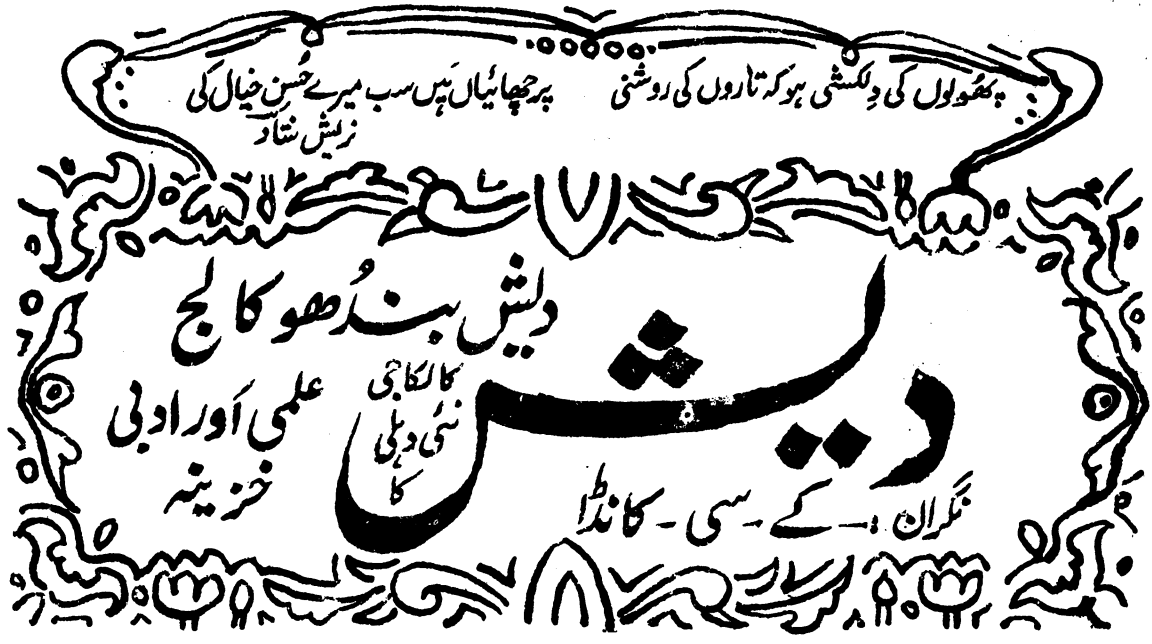 پھولوں کی دلکشی ہو کہ تاروں کی روشنی پرچھائیاں ہیں سب میرے حُسنِ خیال کی
نریش شادؔ
دیش
دیش بندھو کالج
کالکاجی
نئی دہلی
کا
علمی اور ادبی
خزینہ
نگران :۔ کے ۔ سی ۔ کانڈا